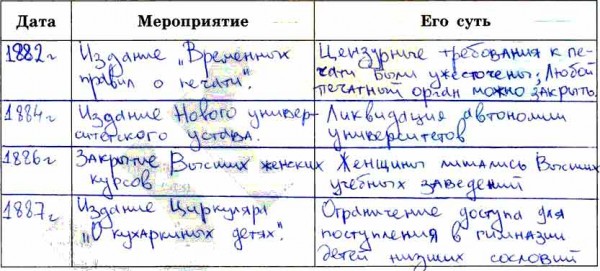 Дата Мероприятие Его суть
1882г Издание „Временных Цензурные требования к пе-
правил о печати". чати были ужесточены; Любой
печатный орган можно закрыть.
1884г. Издание Нового универ- Ликвидация автономии
ситетского устава. университетов
1886г Закрытие Высших женских Женщины лишались Высших
курсов учебных заведений
1887г. Издание Циркуляра Ограничение доступа для
„О кухаркиных детях". поступления в гимназии
детей низших сословий